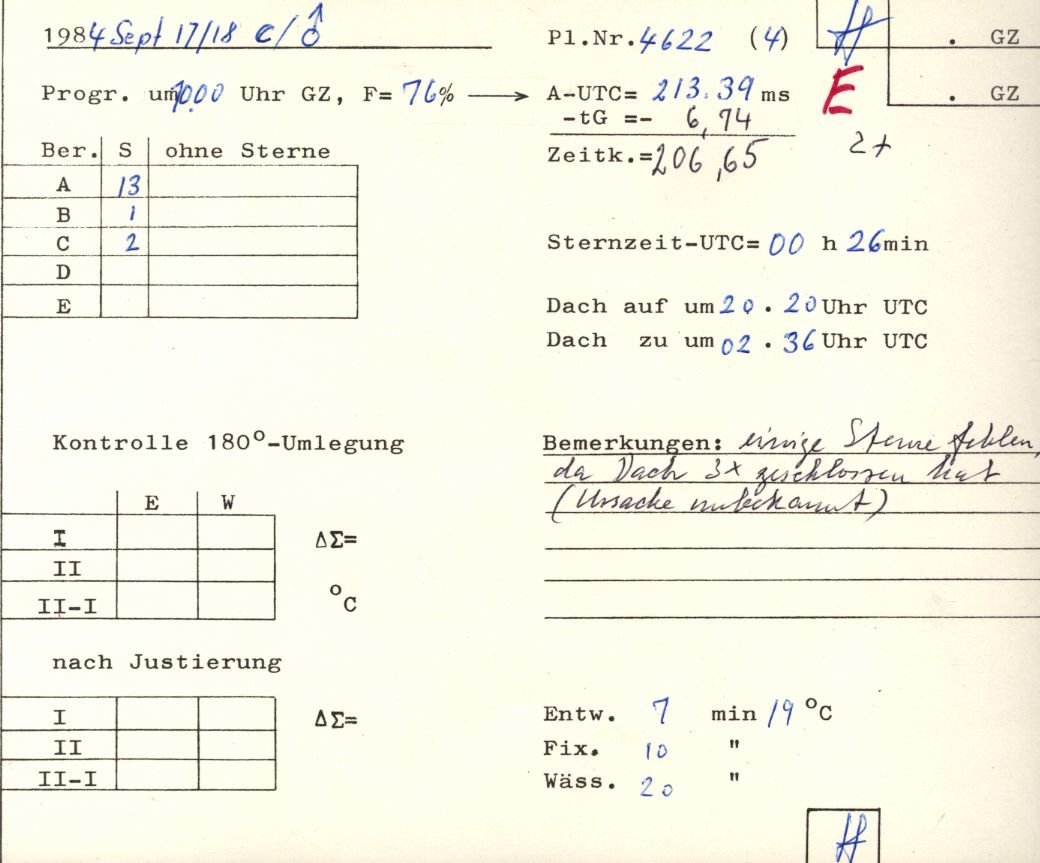 1984 Sept 17/18 ☾/♂
Pl.Nr. 4622 (4)
. GZ
Progr. um 10.00 Uhr GZ, F= 76% → A-UTC= 213.39 ms
E
. GZ
-tG =- 6,74
Zeitk.= 206,65
2+
Ber. S ohne Sterne
A 13
B 1
C 2
D
E
Sternzeit-UTC= 00 h 26min
Dach auf um 20 . 20 Uhr UTC
Dach zu um 02 . 36 Uhr UTC
Kontrolle 180°-Umlegung
E W
I ΔΣ=
II
II-I °C
Bemerkungen: einige Sterne fehlen,
da Dach 3x geschlossen hat
(Ursache unbekannt)
nach Justierung
I ΔΣ=
II
II-I
Entw. 7 min 19 °C
Fix. 10 "
Wäss. 20 "